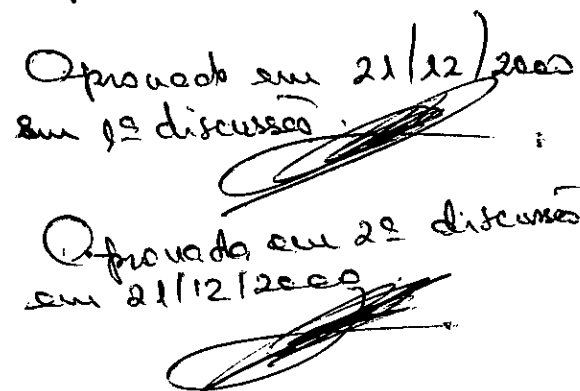 Aprovado em 21/12/2000
em 1ª discussão.
Aprovada em 2ª discussão
em 21/12/2000.